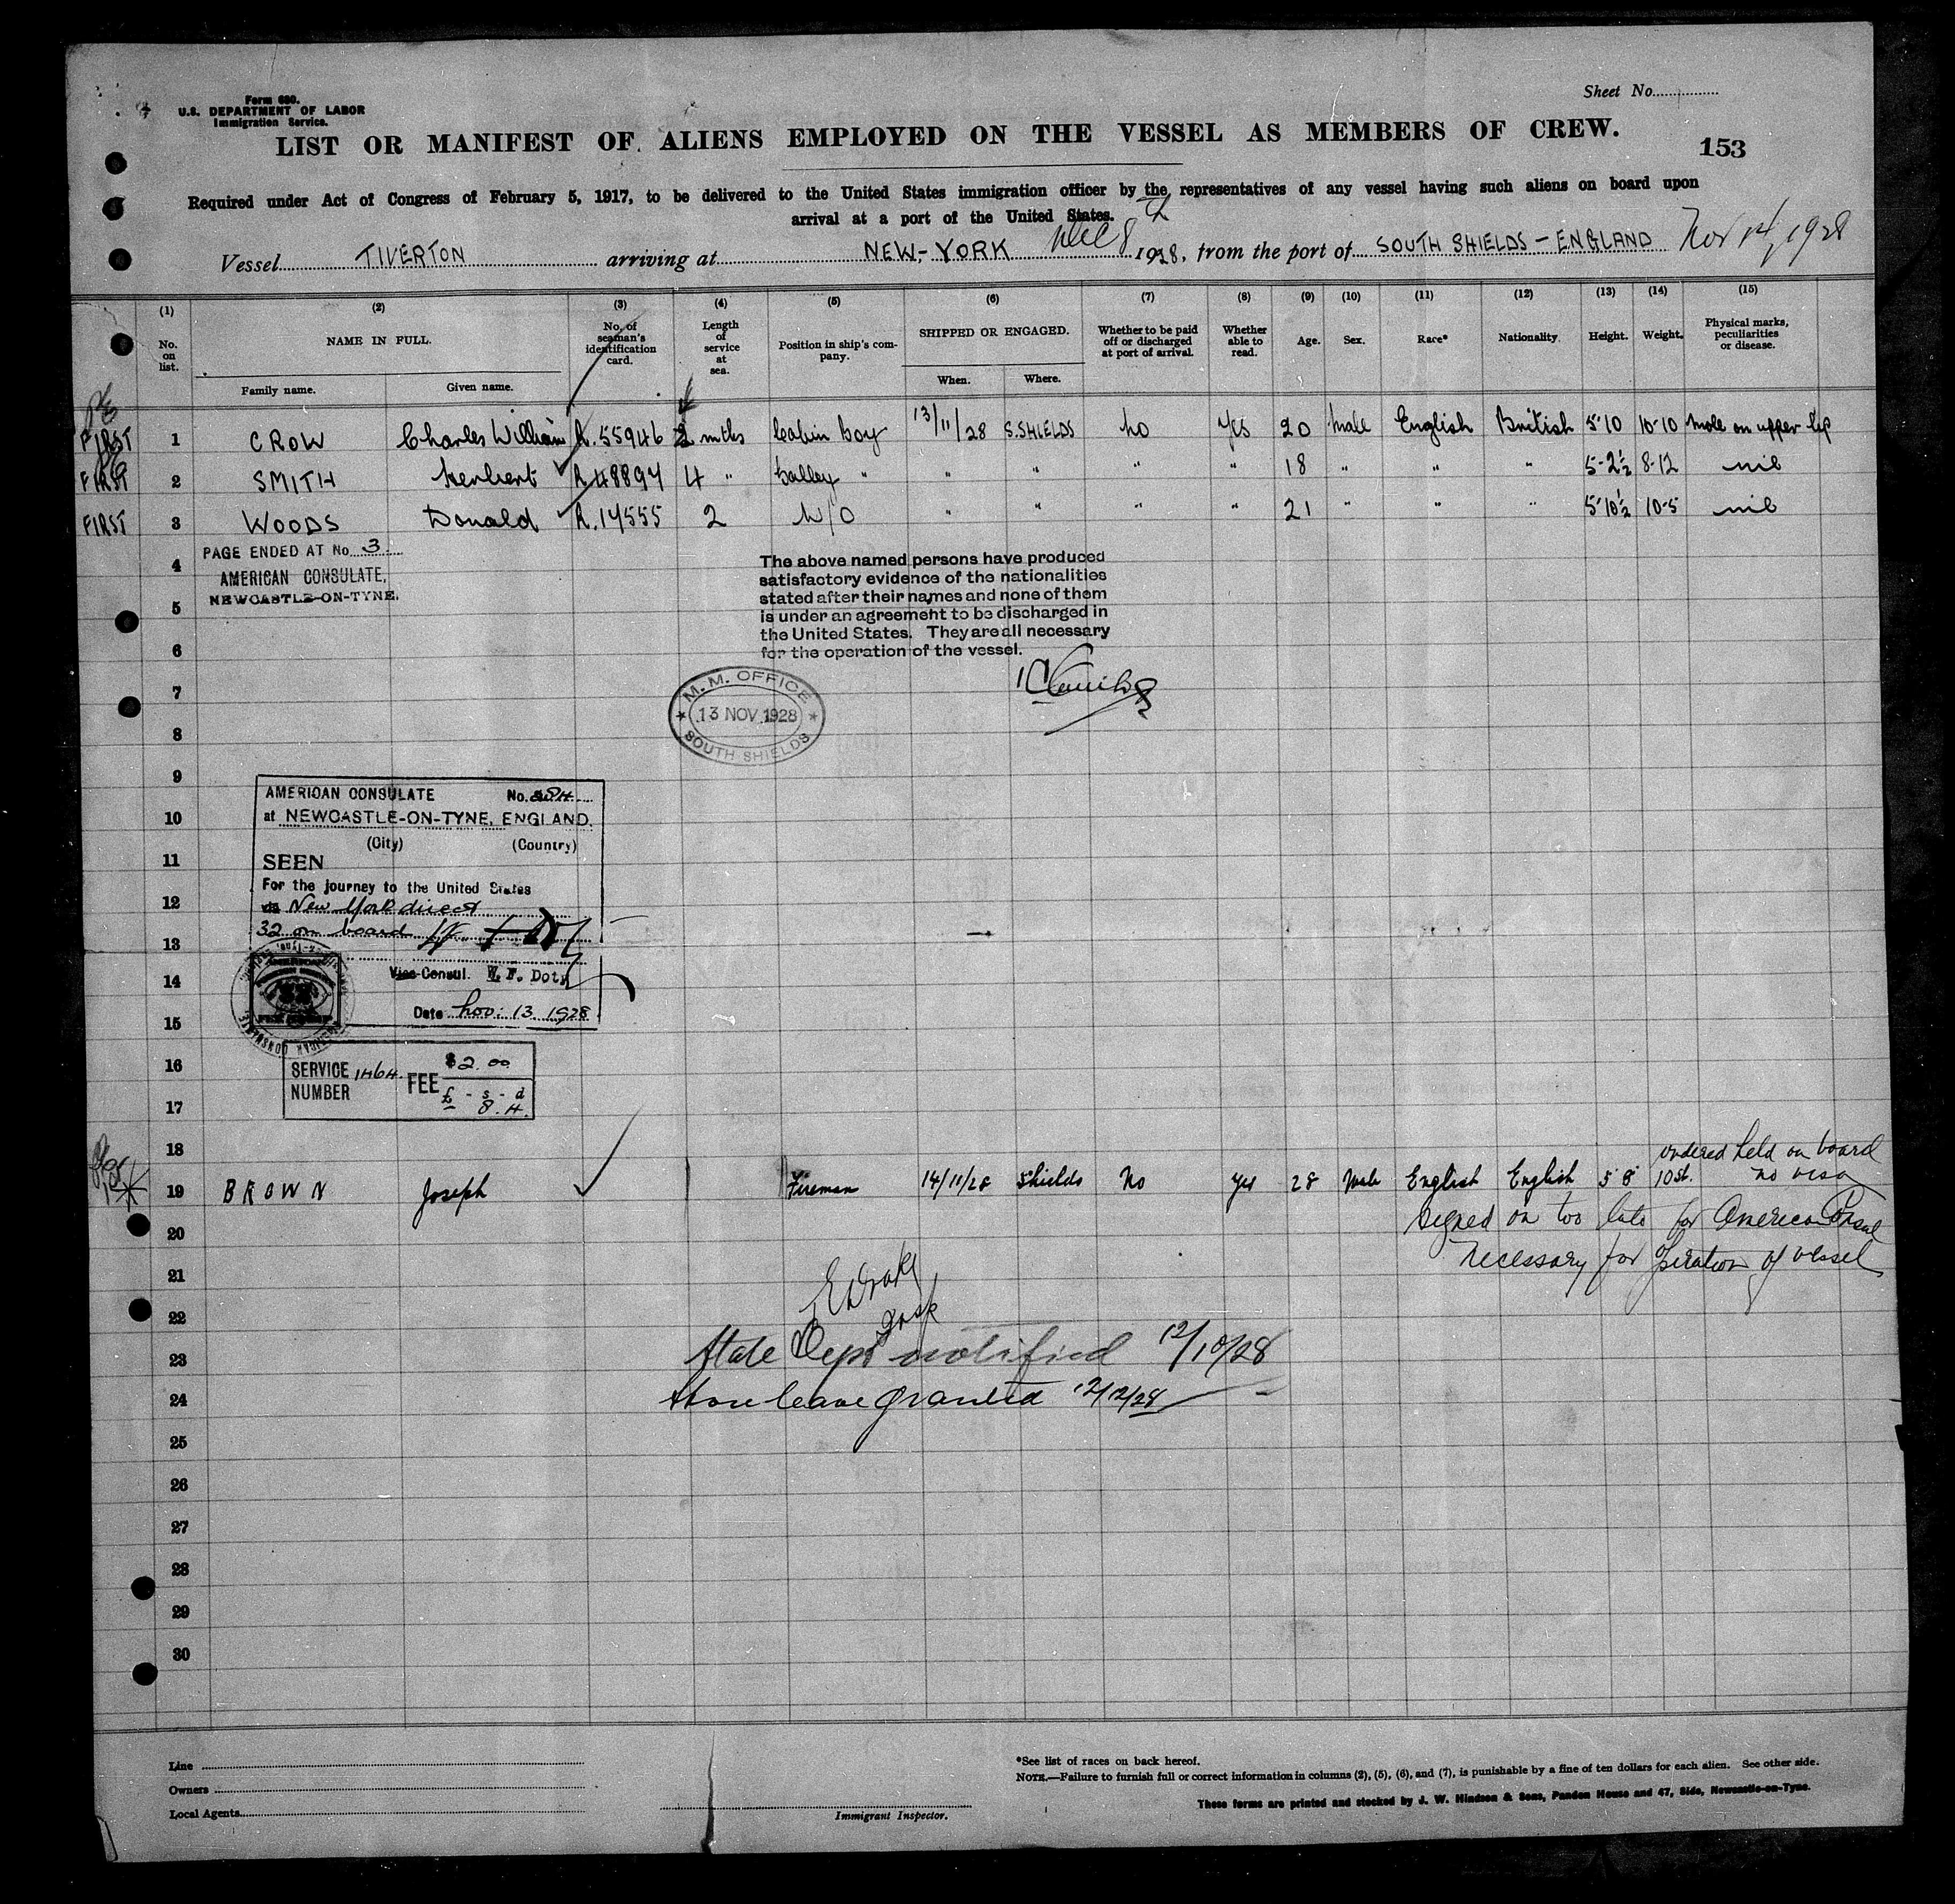 Form 680.
U.S. DEPARTMENT OF LABOR
Immigration Service.
Sheet No.
LIST OR MANIFEST OF ALIENS EMPLOYED ON THE VESSEL AS MEMBERS OF CREW.
153
Required under Act of Congress of February 5, 1917, to be delivered to the United States immigration officer by the representatives of any vessel having such aliens on board upon
arrival at a port of the United States.
Vessel TIVERTON arriving at NEW-YORK Dec 8th 1928, from the port of SOUTH SHIELDS - ENGLAND Nov 14, 1928
(1) (2) (3) (4) (5) (6) (7) (8) (9) (10) (11) (12) (13) (14) (15)
No. on list. NAME IN FULL. No. of seaman's identification card. Length of service at sea. Position in ship's company. SHIPPED OR ENGAGED. Whether to be paid off or discharged at port of arrival. Whether able to read. Age. Sex. Race* Nationality. Height. Weight. Physical marks, peculiarities or disease.
Family name. Given name. When. Where.
FIRST 1 CROW Charles William R.55946 2 mths Cabin Boy 13/11/28 S.SHIELDS No Yes 20 Male English British 5-10 10-10 Mole on upper lip
FIRST 2 SMITH Herbert R.48894 4 " Galley " " " " " 18 " " " 5-2½ 8-12 nil
FIRST 3 WOODS Donald R.14555 2 W/O " " " " 21 " " " 5-10½ 10-5 nil
PAGE ENDED AT No. 3
AMERICAN CONSULATE,
NEWCASTLE-ON-TYNE.
4
5
6
7
8
The above named persons have produced
satisfactory evidence of the nationalities
stated after their names and none of them
is under an agreement to be discharged in
the United States. They are all necessary
for the operation of the vessel.
M. M. OFFICE
13 NOV 1928
SOUTH SHIELDS
9
10
11
12
13
14
15
16
17
18
AMERICAN CONSULATE No.
at NEWCASTLE-ON-TYNE, ENGLAND.
(City) (Country)
SEEN
For the journey to the United States
via New York direct
32 on board
Vice Consul. W. F. Doty
Date Nov. 13 1928
SERVICE NUMBER 1464 FEE $2.00
£ - s - d
8.4.
ordered held on board
no visa
19 BROWN Joseph Fireman 14/11/28 Shields No Yes 28 Male English English 5 8 10st.
signed on too late for American Consul
necessary for operation of vessel
20
21
22
E Drake
State Dept notified 12/10/28
Shore leave granted 12/12/28
23
24
25
26
27
28
29
30
Line
Owners
Local Agents
Immigrant Inspector.
*See list of races on back hereof.
NOTE.—Failure to furnish full or correct information in columns (2), (5), (6), and (7), is punishable by a fine of ten dollars for each alien. See other side.
These forms are printed and stocked by J. W. Hindson & Sons, Pandon House and 47, Side, Newcastle-on-Tyne.